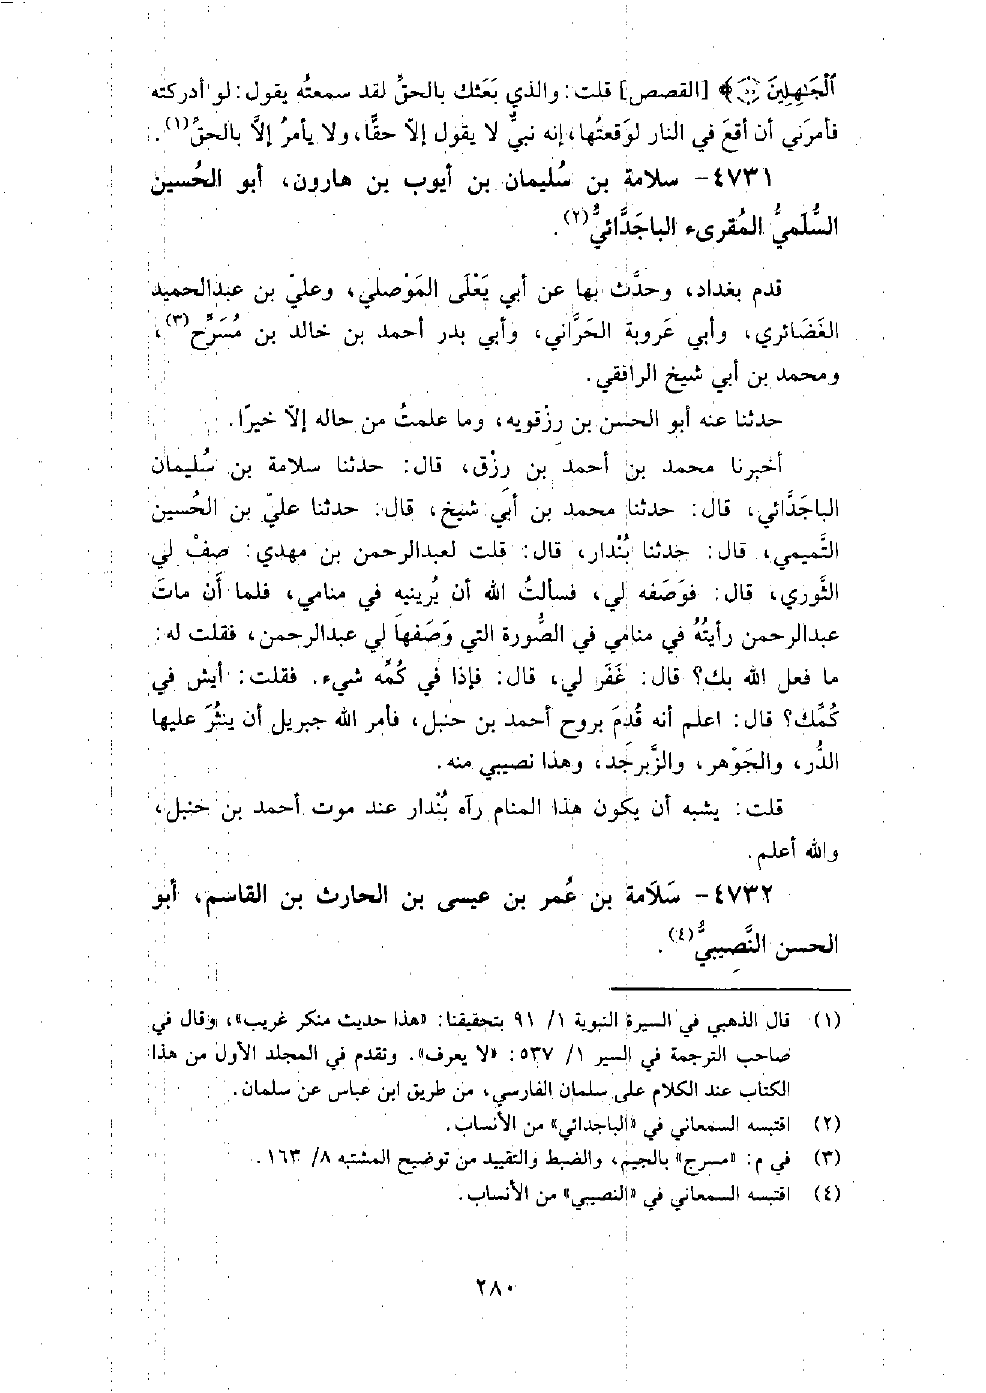 ٱلْجَٰهِلِينَ ﴾ [القصص] قلت: والذي بَعَثك بالحقِّ لقد سمعتُه يقول: لو أدركته
فأمرَني أن أقعَ في النار لوَقعتُها، إنه نبيٌّ لا يقول إلّا حقًّا، ولا يأمرُ إلَّا بالحقِّ(١).
٤٧٣١- سلامة بن سُليمان بن أيوب بن هارون، أبو الحُسين
السُّلَميُّ المُقرىء الباجَدَّائيُّ(٢).
قدم بغداد، وحدَّث بها عن أبي يَعْلَى المَوْصلي، وعليّ بن عبدالحميد
الغَضَائري، وأبي عَروبة الحَرَّاني، وأبي بدر أحمد بن خالد بن مُسَرَّح(٣)،
ومحمد بن أبي شيخ الرافقي.
حدثنا عنه أبو الحسن بن رزْقويه، وما علمتُ من حاله إلّا خيرًا.
أخبرنا محمد بن أحمد بن رزْق، قال: حدثنا سلامة بن سُليمان
الباجَدَّائي، قال: حدثنا محمد بن أبي شيخ، قال: حدثنا عليّ بن الحُسين
التَّميمي، قال: حدثنا بُنْدار، قال: قلت لعبدالرحمن بن مهدي: صِفْ لي
الثَّوري، قال: فوَصَفه لي، فسألتُ الله أن يُرينيه في منامي، فلما أن ماتَ
عبدالرحمن رأيتُهُ في منامي في الصُّورة التي وَصَفها لي عبدالرحمن، فقلت له:
ما فعل الله بك؟ قال: غَفَر لي، قال: فإذا في كُمِّه شيء. فقلت: أيش في
كُمِّك؟ قال: اعلم أنه قُدِمَ بروح أحمد بن حنبل، فأمر الله جبريل أن ينثُرَ عليها
الدُّر، والجَوْهر، والزَّبرجَد، وهذا نصيبي منه.
قلت: يشبه أن يكون هذا المنام رآه بُنْدار عند موت أحمد بن حنبل،
والله أعلم.
٤٧٣٢- سَلَامة بن عُمر بن عيسى بن الحارث بن القاسم، أبو
الحسن النَّصِيبيُّ(٤).
(١) قال الذهبي في السيرة النبوية ١/ ٩١ بتحقيقنا: «هذا حديث منكر غريب»، وقال في
صاحب الترجمة في السير ١/ ٥٣٧: «لا يعرف». وتقدم في المجلد الأول من هذا
الكتاب عند الكلام على سلمان الفارسي، من طريق ابن عباس عن سلمان.
(٢) اقتبسه السمعاني في «الباجدائي» من الأنساب.
(٣) في م: «مسرج» بالجيم، والضبط والتقييد من توضيح المشتبه ٨/ ١٦٣.
(٤) اقتبسه السمعاني في «النصيبي» من الأنساب.
٢٨٠